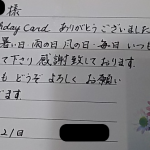 様
hday Card ありがとうございました
暑い日 雨の日 風の日・毎日 いつも
て下さり感謝致しております
も どうぞ よろしく お願い
ます
21日